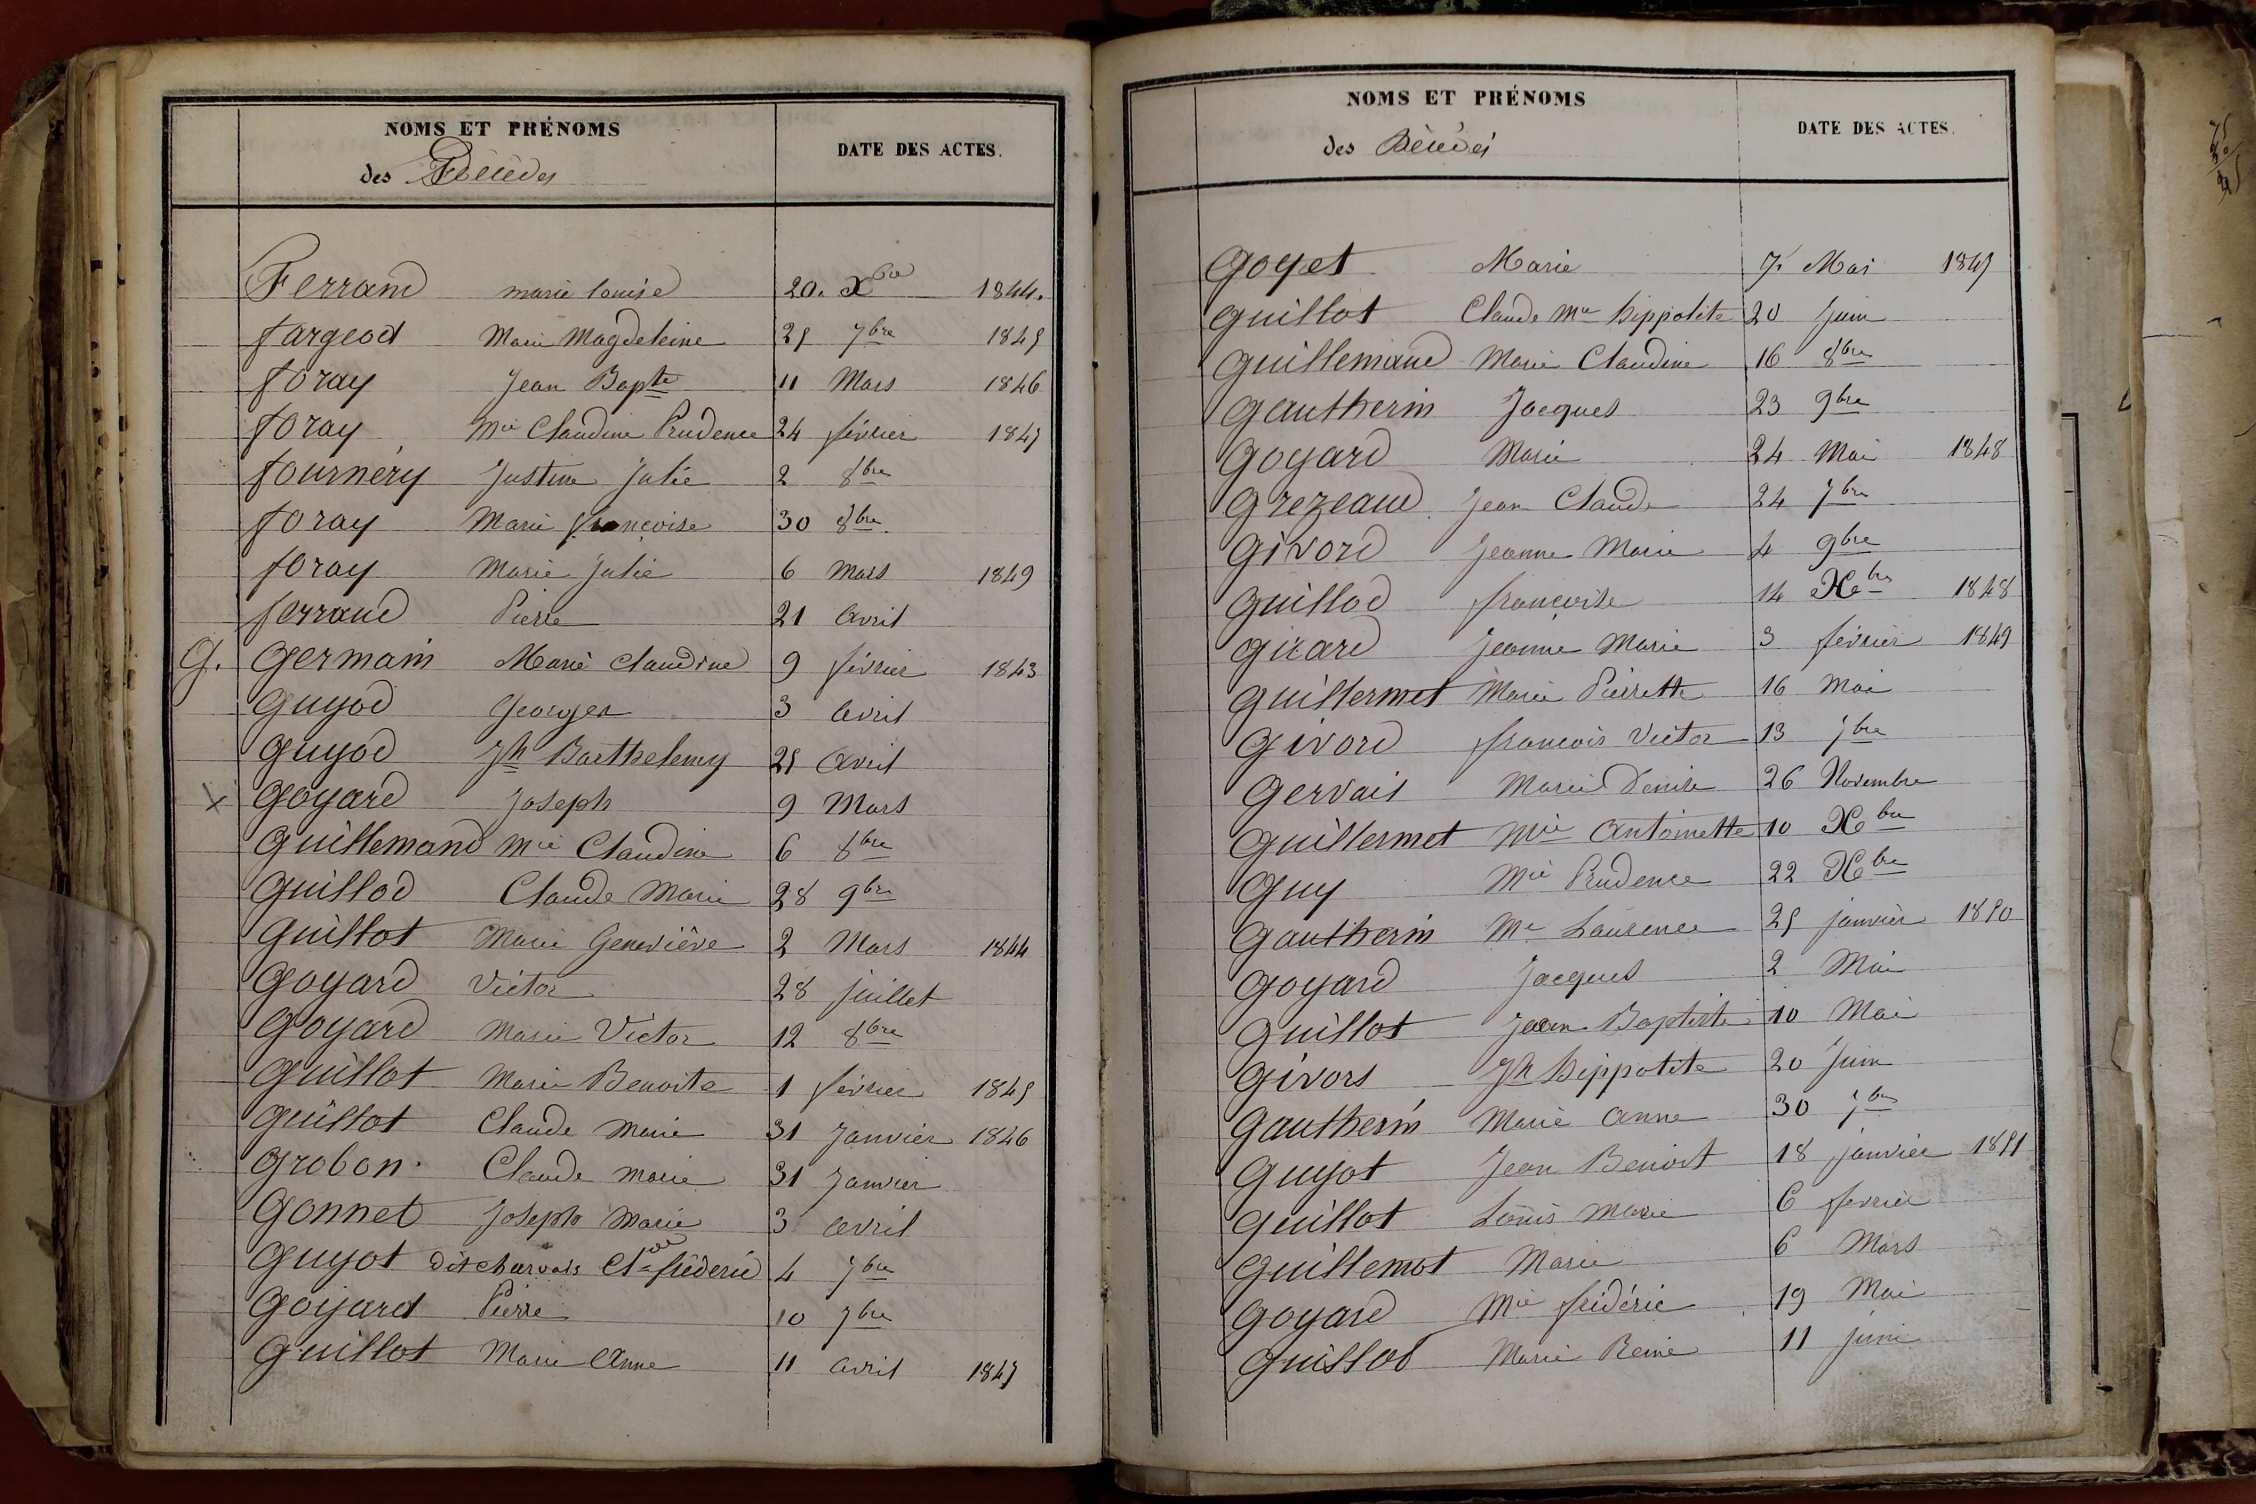 NOMS ET PRÉNOMS
des Décédés
DATE DES ACTES.
Ferrand marie louise 20. Xbre 1844.
fargeot Marie Magdeleine 25 7bre 1845
foray Jean Bapte 11 Mars 1846
foray Mie Claudine Prudence 24 février 1847
fournéry Justine Julie 2 8bre
foray Marie françoise 30 8bre
foray Marie Julie 6 Mars 1849
ferraud Pierre 21 avril
G. Germain Marie Claudine 9 février 1843
Guyod Georges 3 avril
Guyod Jh Barthelemy 25 avril
x Goyard Joseph 9 Mars
Guillemand Mie Claudine 6 8bre
Guillod Claude Marie 28 9bre
Guillot Marie Geneviève 2 Mars 1844
Goyard Victor 28 juillet
Goyard Marie Victor 12 8bre
Guillot Marie Benoite 1 février 1845
Guillot Claude Marie 31 Janvier 1846
Grobon. Claude Marie 31 Janvier
Gonnet Joseph Marie 3 avril
Guyot dit charvais Cl-de fréderic 4 7bre
Goyard Pierre 10 7bre
Guillot Marie Anne 11 avril 1847
NOMS ET PRÉNOMS
des Décédés
DATE DES ACTES.
Goyet Marie 7 Mai 1847
Guillot Claude Mie hippolite 20 Juin
Guillemaud Marie Claudine 16 8bre
Gautherin Jacques 23 9bre
Goyard Marie 24 Mai 1848
Grezeaud Jean Claude 24 7bre
Givord Jeanne Marie 4 9bre
Guillod françoise 14 Xbre 1848
Girard Jeanne Marie 3 février 1849
Guillermet Marie Pierrette 16 Mai
Givord françois Victor 13 7bre
Gervais Marie Denise 26 Novembre
Guillermet Mie Antoinette 10 Xbre
Guy Mie Prudence 22 Xbre
Gautherin Me Laurence 25 janvier 1850
Goyard Jacques 2 Mai
Guillot Jean Baptiste 10 Mai
Givors Jh hippolite 20 Juin
Gautherin Marie Anne 30 7bre
Guyot Jean Benoit 18 janvier 1851
Guillot Louis Marie 6 fevrier
Guillemot Marie 6 Mars
Goyard Mie frédéric 19 Mai
Guillot Marie Reine 11 juin